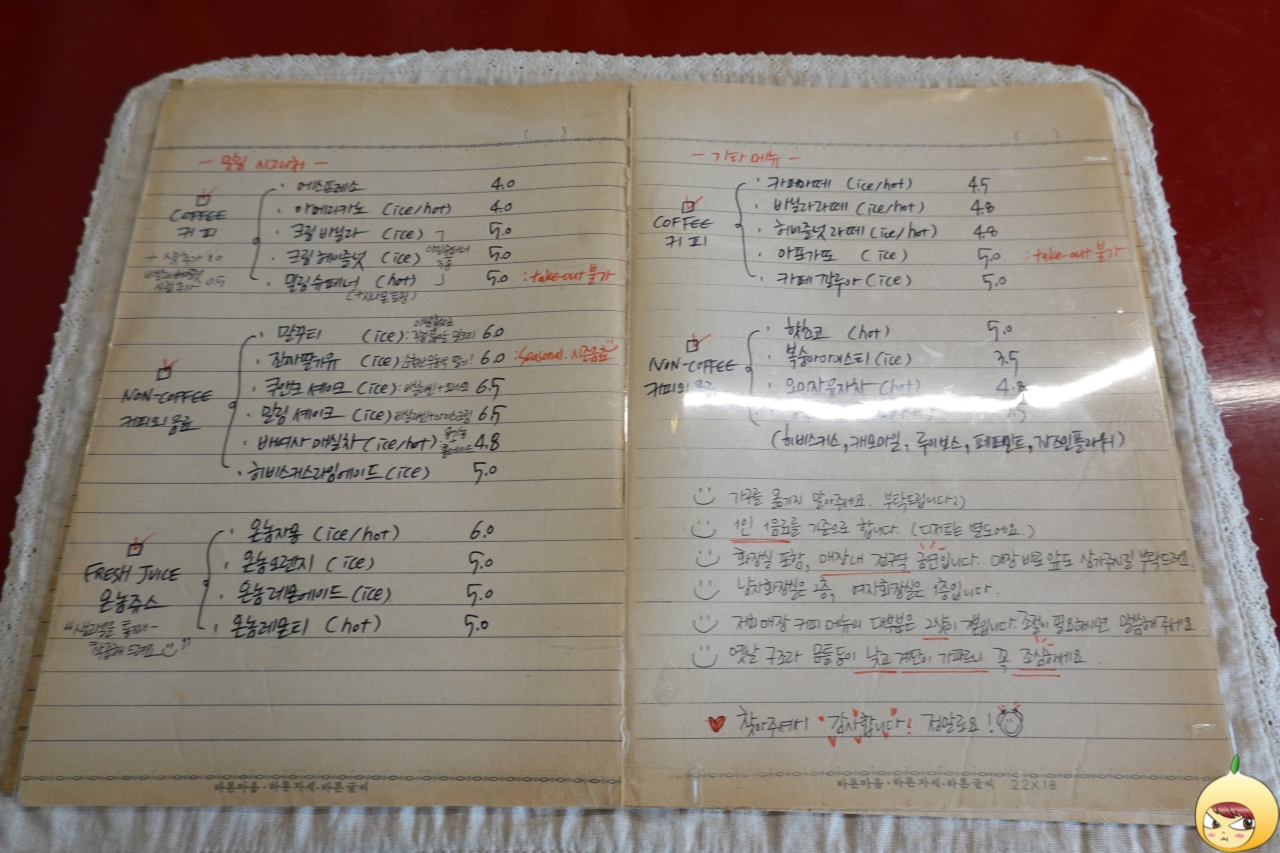 - 밀월 시그니처 -
COFFEE
커피
+ 샷추가 1.0
시럽추가 0.5
· 에스프레소 4.0
· 아메리카노 (ice/hot) 4.0
· 크림바닐라 (ice) 5.0
· 크림헤이즐넛 (ice) 5.0
· 밀월슈페너 (hot) 5.0 : take-out 불가
NON-COFFEE
커피외 음료
· 말꾸티 (ice) : 6.0
· 진짜딸기우유 (ice) : 6.0 : Seasonal. 시즌음료
· 쿠앤크 셰이크 (ice) : 6.5
· 밀월 셰이크 (ice) 6.5
· 배여사 매실차 (ice/hot) 4.8
· 히비스커스라임에이드 (ice) 5.0
FRESH JUICE
온농쥬스
· 온농자몽 (ice/hot) 6.0
· 온농오렌지 (ice) 5.0
· 온농레몬에이드 (ice) 5.0
· 온농레몬티 (hot) 5.0
바른마음·바른자세·바른글씨
- 기타 메뉴 -
COFFEE
커피
· 카페라떼 (ice/hot) 4.5
· 바닐라라떼 (ice/hot) 4.8
· 헤이즐넛라떼 (ice/hot) 4.8
· 아포가토 (ice) 5.0 : take-out 불가
· 카페깔루아 (ice) 5.0
NON-COFFEE
커피외 음료
· 핫초코 (hot) 5.0
· 복숭아아이스티 (ice) 3.5
· 오미자유자차 (hot) 4.8
(히비스커스, 캐모마일, 루이보스, 페퍼민트, 자스민플라워)
가구를 옮기지 말아주세요. 부탁드립니다:)
1인 1음료를 기준으로 합니다. (디저트는 별도에요.)
화장실 포함, 매장내 전구역 금연입니다. 매장 바로 앞도 삼가주시길 부탁드려요.
남자화장실은 2층, 여자화장실은 1층입니다.
저희매장 커피 메뉴의 대부분은 2샷이 기본입니다. 조절이 필요하시면 말씀해 주세요
옛날 구조라 문들이 낮고 계단이 가파르니 꼭 조심하세요.
찾아주셔서 감사합니다! 정말로요!
바른마음·바른자세·바른글씨 22X18